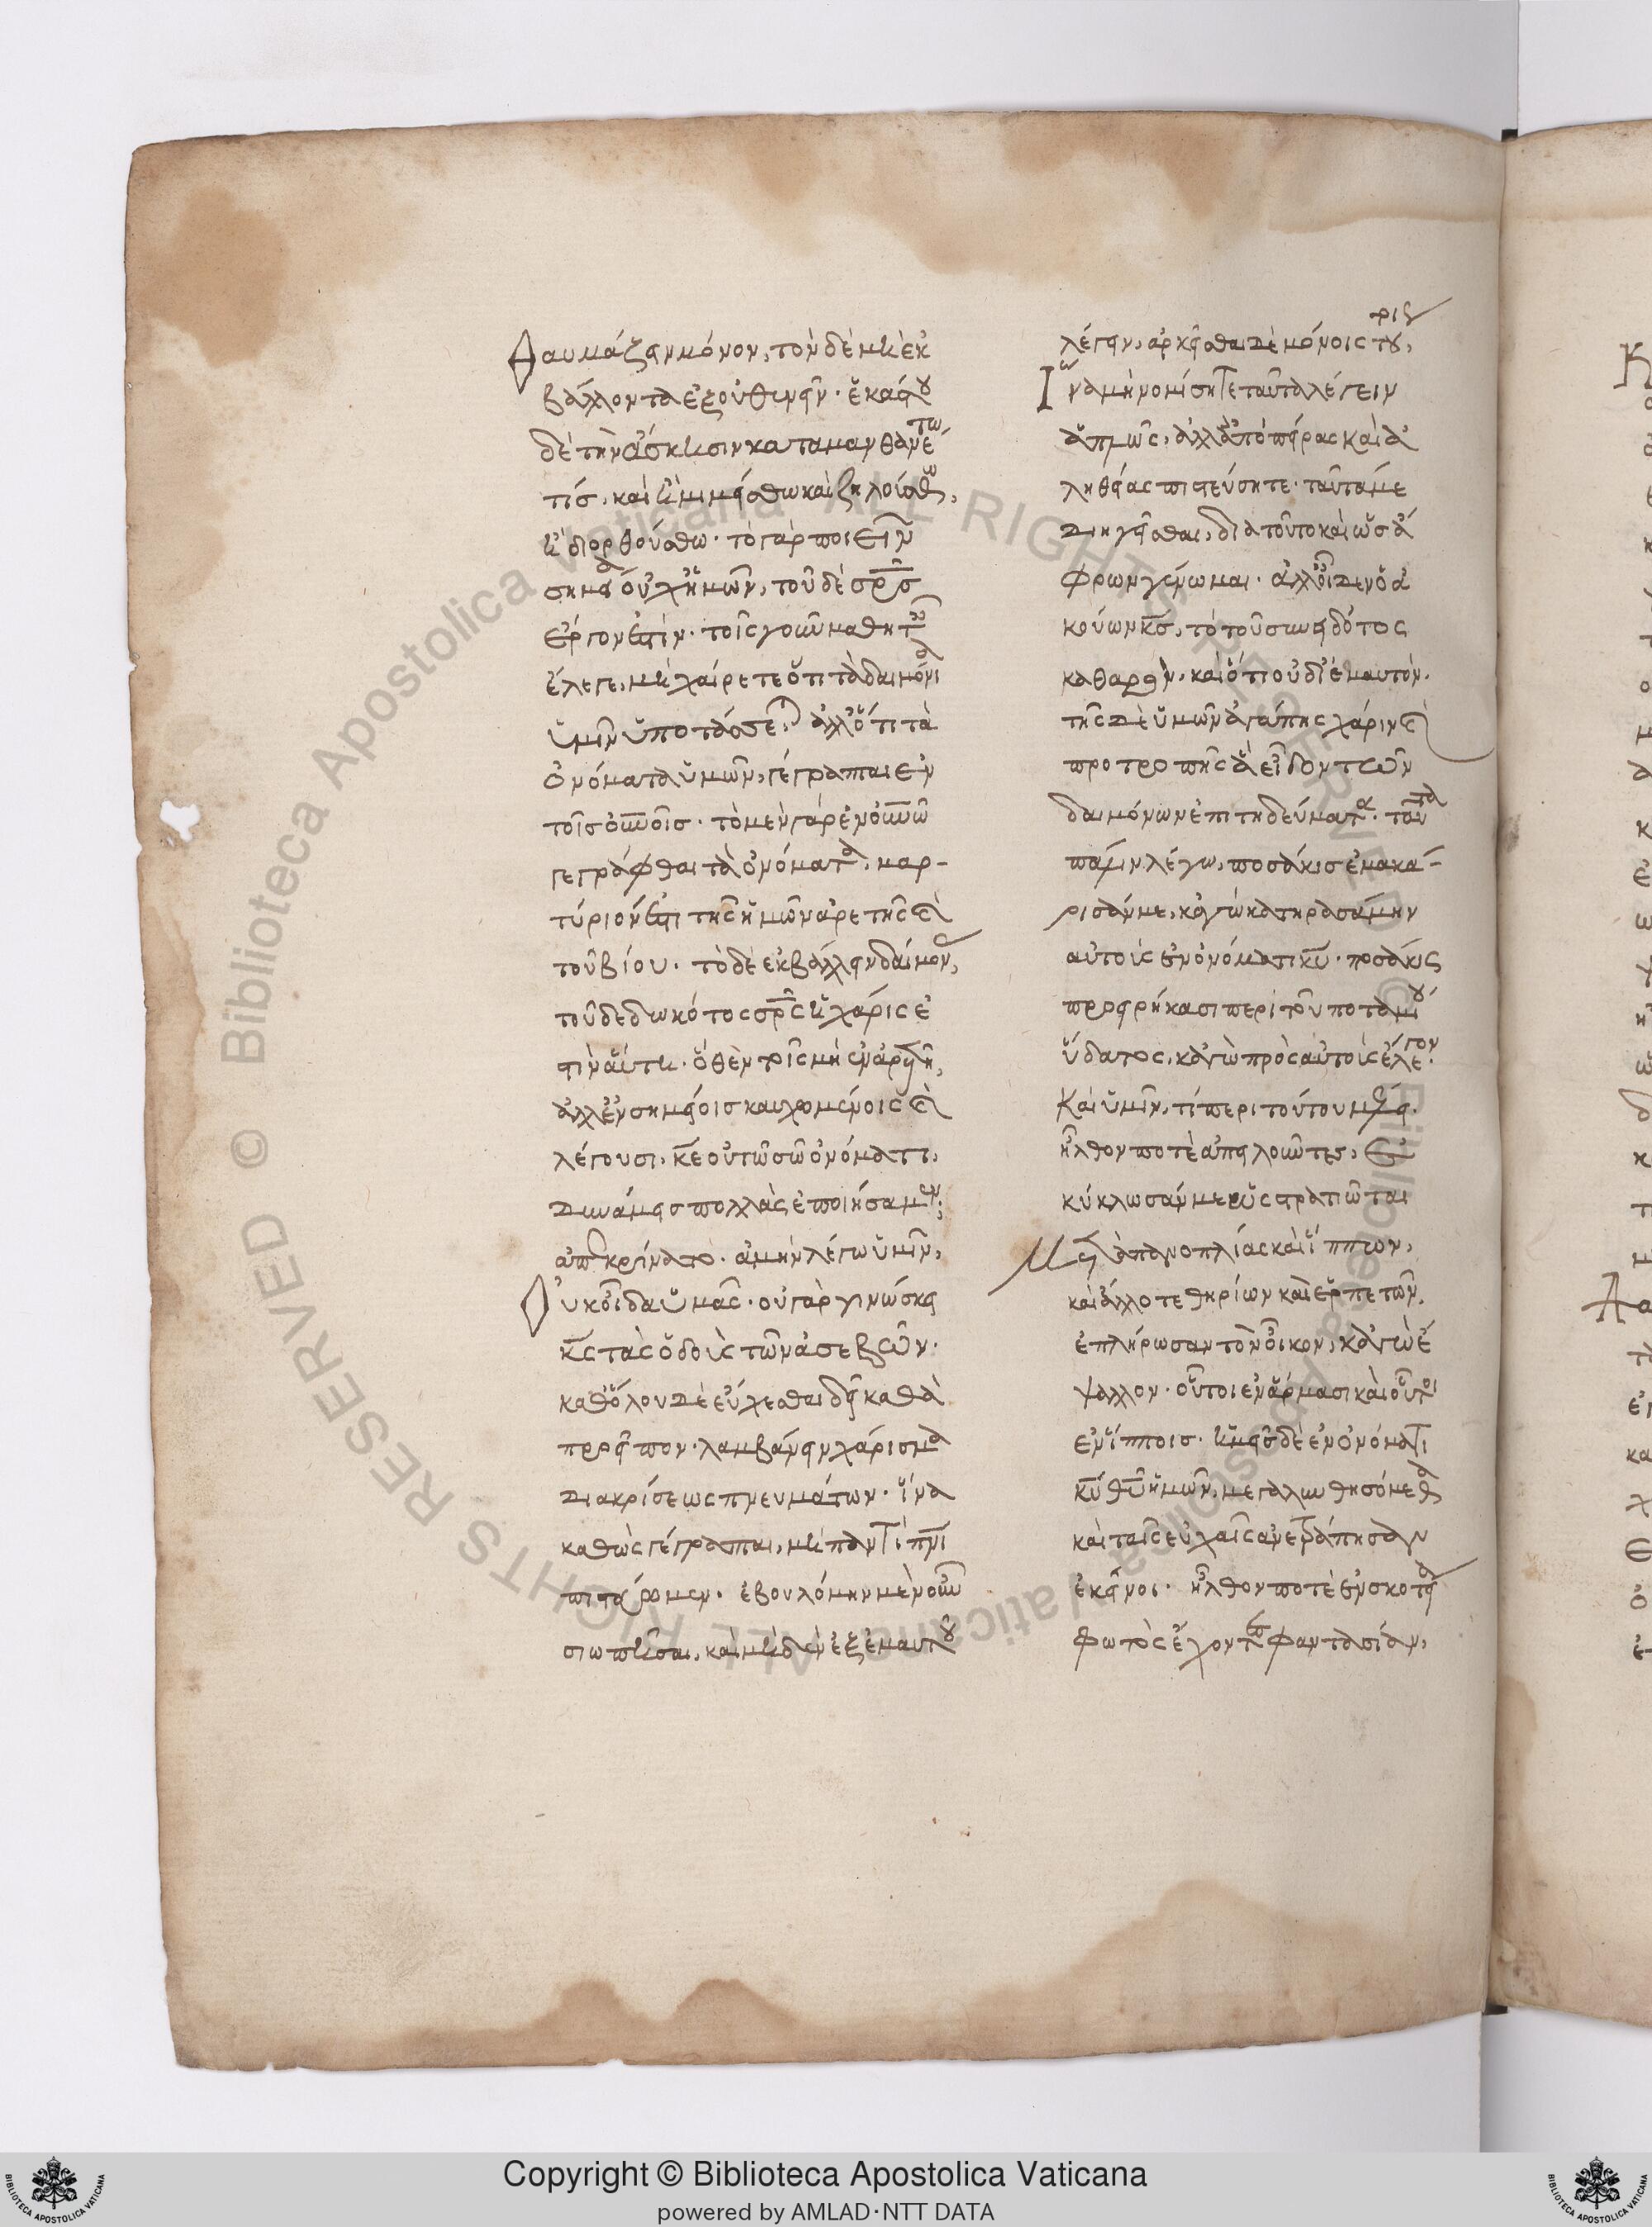 θαυμάζειν μόνον, τὸν δὲ μὴ ἐκ
βάλλοντα ἐξουθενεῖν· ἑκάστου
δὲ τὴν ἄσκησιν καταμανθανέτω
τίς, καὶ ἢ μιμείσθω καὶ ζηλούσθω,
ἢ διορθούσθω· τὸ γὰρ ποιεῖν
σημεῖα οὐχ ἡμῶν, τοῦ δὲ σρς
ἔργον ἐστίν· τοῖς γοῦν μαθηταῖς
ἔλεγε, μὴ χαίρετε ὅτι τὰ δαιμόνια
ὑμῖν ὑποτάσσεται, ἀλλ' ὅτι τὰ
ὀνόματα ὑμῶν, γέγραπται ἐν
τοῖς οὐνοῖς· τὸ μὲν γὰρ ἐν οὐνῶ
γεγράφθαι τὰ ὀνόματα, μαρ-
τύριόν ἐστι τῆς ἡμῶν ἀρετῆς καὶ
τοῦ βίου· τὸ δὲ ἐκβάλλειν δαίμονας,
τοῦ δεδωκότος σρς ἡ χάρις ἐ
στὶν αὕτη· ὅθεν τοῖς μὴ ἐν ἀρετῆ,
ἀλλ' ἐν σημείοις καυχομένοις καὶ
λέγουσι, κε οὐ τῶ σῶ ὀνόματι,
δυνάμεις πολλὰς ἐποιήσαμεν;
ἀπεκρίνατο· ἀμὴν λέγω ὑμῖν,
Οὐκ οἶδα ὑμᾶς· οὐ γὰρ γινώσκει
κς τὰς ὁδοὺς τῶν ἀσεβῶν·
καθόλου δὲ εὔχεσθαι δεῖ καθὰ
προεῖπον· λαμβάνειν χάρισμα
διακρίσεως πνευμάτων· ἵνα
καθὼς γέγραπται, μὴ παντὶ πνι
πιστεύωμεν· ἐβουλόμην μὲν οὖν
σιωπῆσαι, καὶ μηδὲν ἐξ ἐμαυτοῦ
λέγειν, ἀρκεῖσθαι δὲ μόνοις τού,
Ἵνα μὴ νομίσητε ταῦτα λέγειν
ἁπλῶς, ἀλλ' ἀπὸ πείρας καὶ ἀ
ληθείας πιστεύσητε· ταῦτά με
διηγεῖσθαι, διὰ τοῦτο κἂν ὡς ἄ
φρων γένωμαι· ἀλλ' οἶδεν ὁ ἀ
κούων κς, τὸ τοῦ συνειδότος
καθαρὸν, καὶ ὅτι οὐ δι' ἐμαυτόν.
τῆς δὲ ὑμῶν ἀγάπης χάριν καὶ
προτροπῆς ἃ εἶδον τῶν
δαιμόνων ἐπιτηδεύματα· ταῦτα
πάλιν λέγω, ποσάκις ἐμακά-
ρισάν με, κἀγὼ κατηρασάμην
αὐτοῖς ἐν ὀνόματι κυ· ποσάκις
προειρήκασι περὶ τοῦ ποταμίου
ὕδατος, κἀγὼ πρὸς αὐτοὺς ἔλεγον·
Καὶ ὑμῖν, τί περὶ τούτου μέλει.
ἦλθόν ποτε ἀπειλοῦντες, καὶ ἐ
κύκλωσάν με ὡς στρατιῶται
Μετὰ πανοπλίας καὶ ἵππων,
καὶ ἄλλοτε θηρίων καὶ ἑρπετῶν,
ἐπλήρωσαν τὸν οἶκον, κἀγὼ ἔ
ψαλλον· οὗτοι ἐν ἅρμασι καὶ οὗτοι
ἐν ἵπποις· ἡμεῖς δὲ ἐν ὀνόματι
κυ θυ ἡμῶν, μεγαλυνθησόμεθα
καὶ ταῖς εὐχαῖς ἀνετράπησαν
ἐκεῖνοι· ἦλθόν ποτε ἐν σκότει
Φωτὸς ἔχοντες φαντασίαν,
© Biblioteca Apostolica Vaticana ALL RIGHTS RESERVED
Copyright © Biblioteca Apostolica Vaticana
powered by AMLAD·NTT DATA